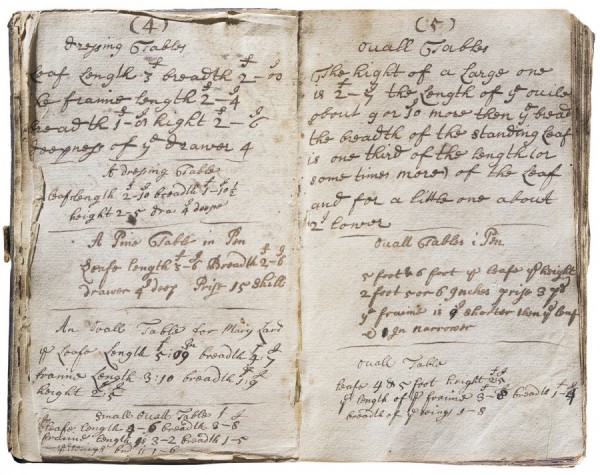 (4)
Dresing Tables
Leaf Length 3 breadth 2-00
ye frame length 2-4
breadth 1-01 hight 2-6
deepness of ye drawer 4
A dresing Table
leaf length 2-10 breadth 1-10½
height 2-5 drar 4 deepe
A Pine Table in Pen
Leafe length 3-6 Breadth 2-6
drawer 4 deep Prise 15 Shill
An Ovall Table for Mary Card
ye Leafe Length 5:09 breadth 4:7
fraime Length 3:10 breadth 1:9
height 2:5
A Small Ouall Table
Leafe Length 4-6 breadth 3-8
fraime length is 3-2 breadth 1-5
1-6
(5)
Ouall Tables
The hight of a Large one
is 2-7 the Length of ye
about 9 or 10 more then ye bread
the breadth of the standing Leaf
is one third of the length (or
some times more) of the Leaf
and for a little one about
2 Lower
Ouall Tables i Pen
5 foot & 6 foot ye leafe ye height
2 foot 5 or 6 Inches prise 3
ye fraime is 9 shorter then ye leaf
& 1 In narrower
Ouall Table
Leafe 4 & 5 foot height 2 5
ye length of ye fraime 3-8 breadth 1-4
breadth of ye wing 1-8